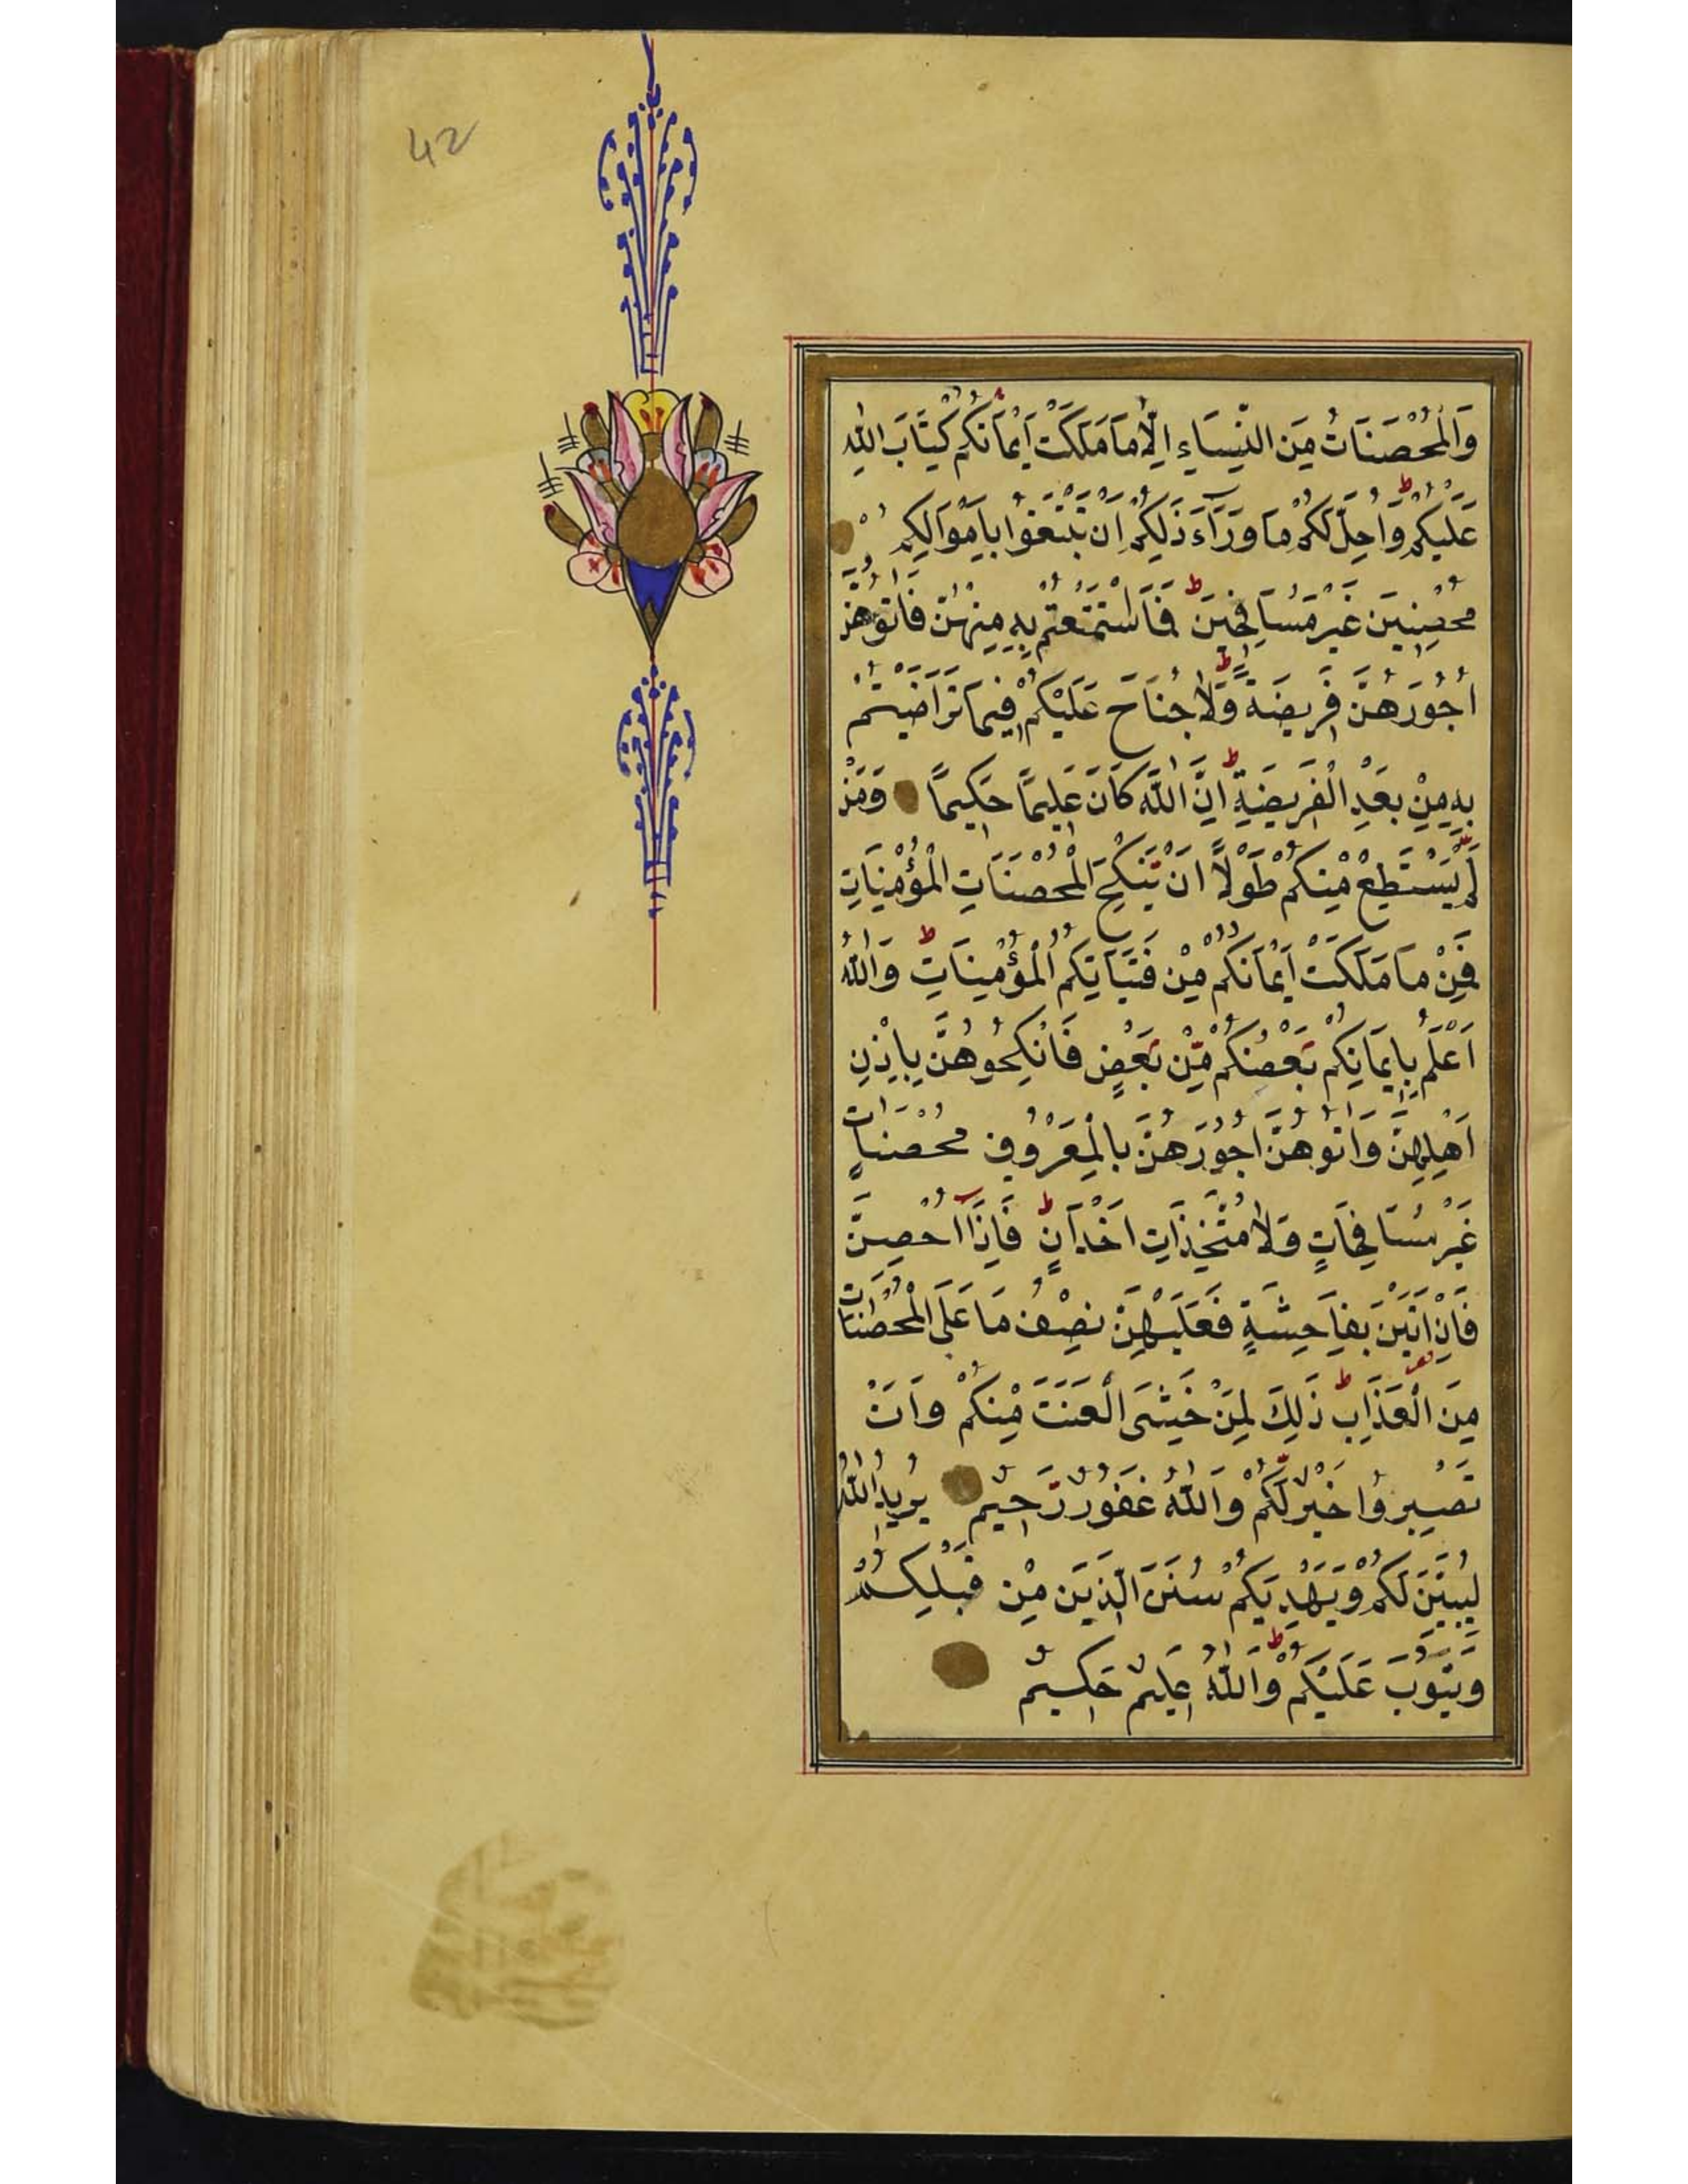 42
وَالْمُحْصَنَاتُ مِنَ النِّسَاءِ اِلَّا مَا مَلَكَتْ اَيْمَانُكُمْ كِتَابَ اللّٰهِ
عَلَيْكُمْ وَاُحِلَّ لَكُمْ مَا وَرَآءَ ذَلِكُمْ اَنْ تَبْتَغُوا بِاَمْوَالِكُمْ
مُحْصِنِينَ غَيْرَ مُسَافِحِينَ ط فَمَا اسْتَمْتَعْتُمْ بِهِ مِنْهُنَّ فَاٰتُوهُنَّ
اُجُورَهُنَّ فَرِيضَةً ط وَلَا جُنَاحَ عَلَيْكُمْ فِيمَا تَرَاضَيْتُمْ
بِهِ مِنْ بَعْدِ الْفَرِيضَةِ ط اِنَّ اللّٰهَ كَانَ عَلِيمًا حَكِيمًا وَمَنْ
لَمْ يَسْتَطِعْ مِنْكُمْ طَوْلًا اَنْ يَنْكِحَ الْمُحْصَنَاتِ الْمُؤْمِنَاتِ
فَمِنْ مَا مَلَكَتْ اَيْمَانُكُمْ مِنْ فَتَيَاتِكُمُ الْمُؤْمِنَاتِ ط وَاللّٰهُ
اَعْلَمُ بِاِيمَانِكُمْ بَعْضُكُمْ مِنْ بَعْضٍ فَانْكِحُوهُنَّ بِاِذْنِ
اَهْلِهِنَّ وَاٰتُوهُنَّ اُجُورَهُنَّ بِالْمَعْرُوفِ مُحْصَنَاتٍ
غَيْرَ مُسَافِحَاتٍ وَلَا مُتَّخِذَاتِ اَخْدَانٍ ط فَاِذَا اُحْصِنَّ
فَاِنْ اَتَيْنَ بِفَاحِشَةٍ فَعَلَيْهِنَّ نِصْفُ مَا عَلَى الْمُحْصَنَاتِ
مِنَ الْعَذَابِ ط ذَلِكَ لِمَنْ خَشِىَ الْعَنَتَ مِنْكُمْ وَاَنْ
تَصْبِرُوا خَيْرٌ لَكُمْ وَاللّٰهُ غَفُورٌ رَحِيمٌ يُرِيدُ اللّٰهُ
لِيُبَيِّنَ لَكُمْ وَيَهْدِيَكُمْ سُنَنَ الَّذِينَ مِنْ قَبْلِكُمْ
وَيَتُوبَ عَلَيْكُمْ ط وَاللّٰهُ عَلِيمٌ حَكِيمٌ